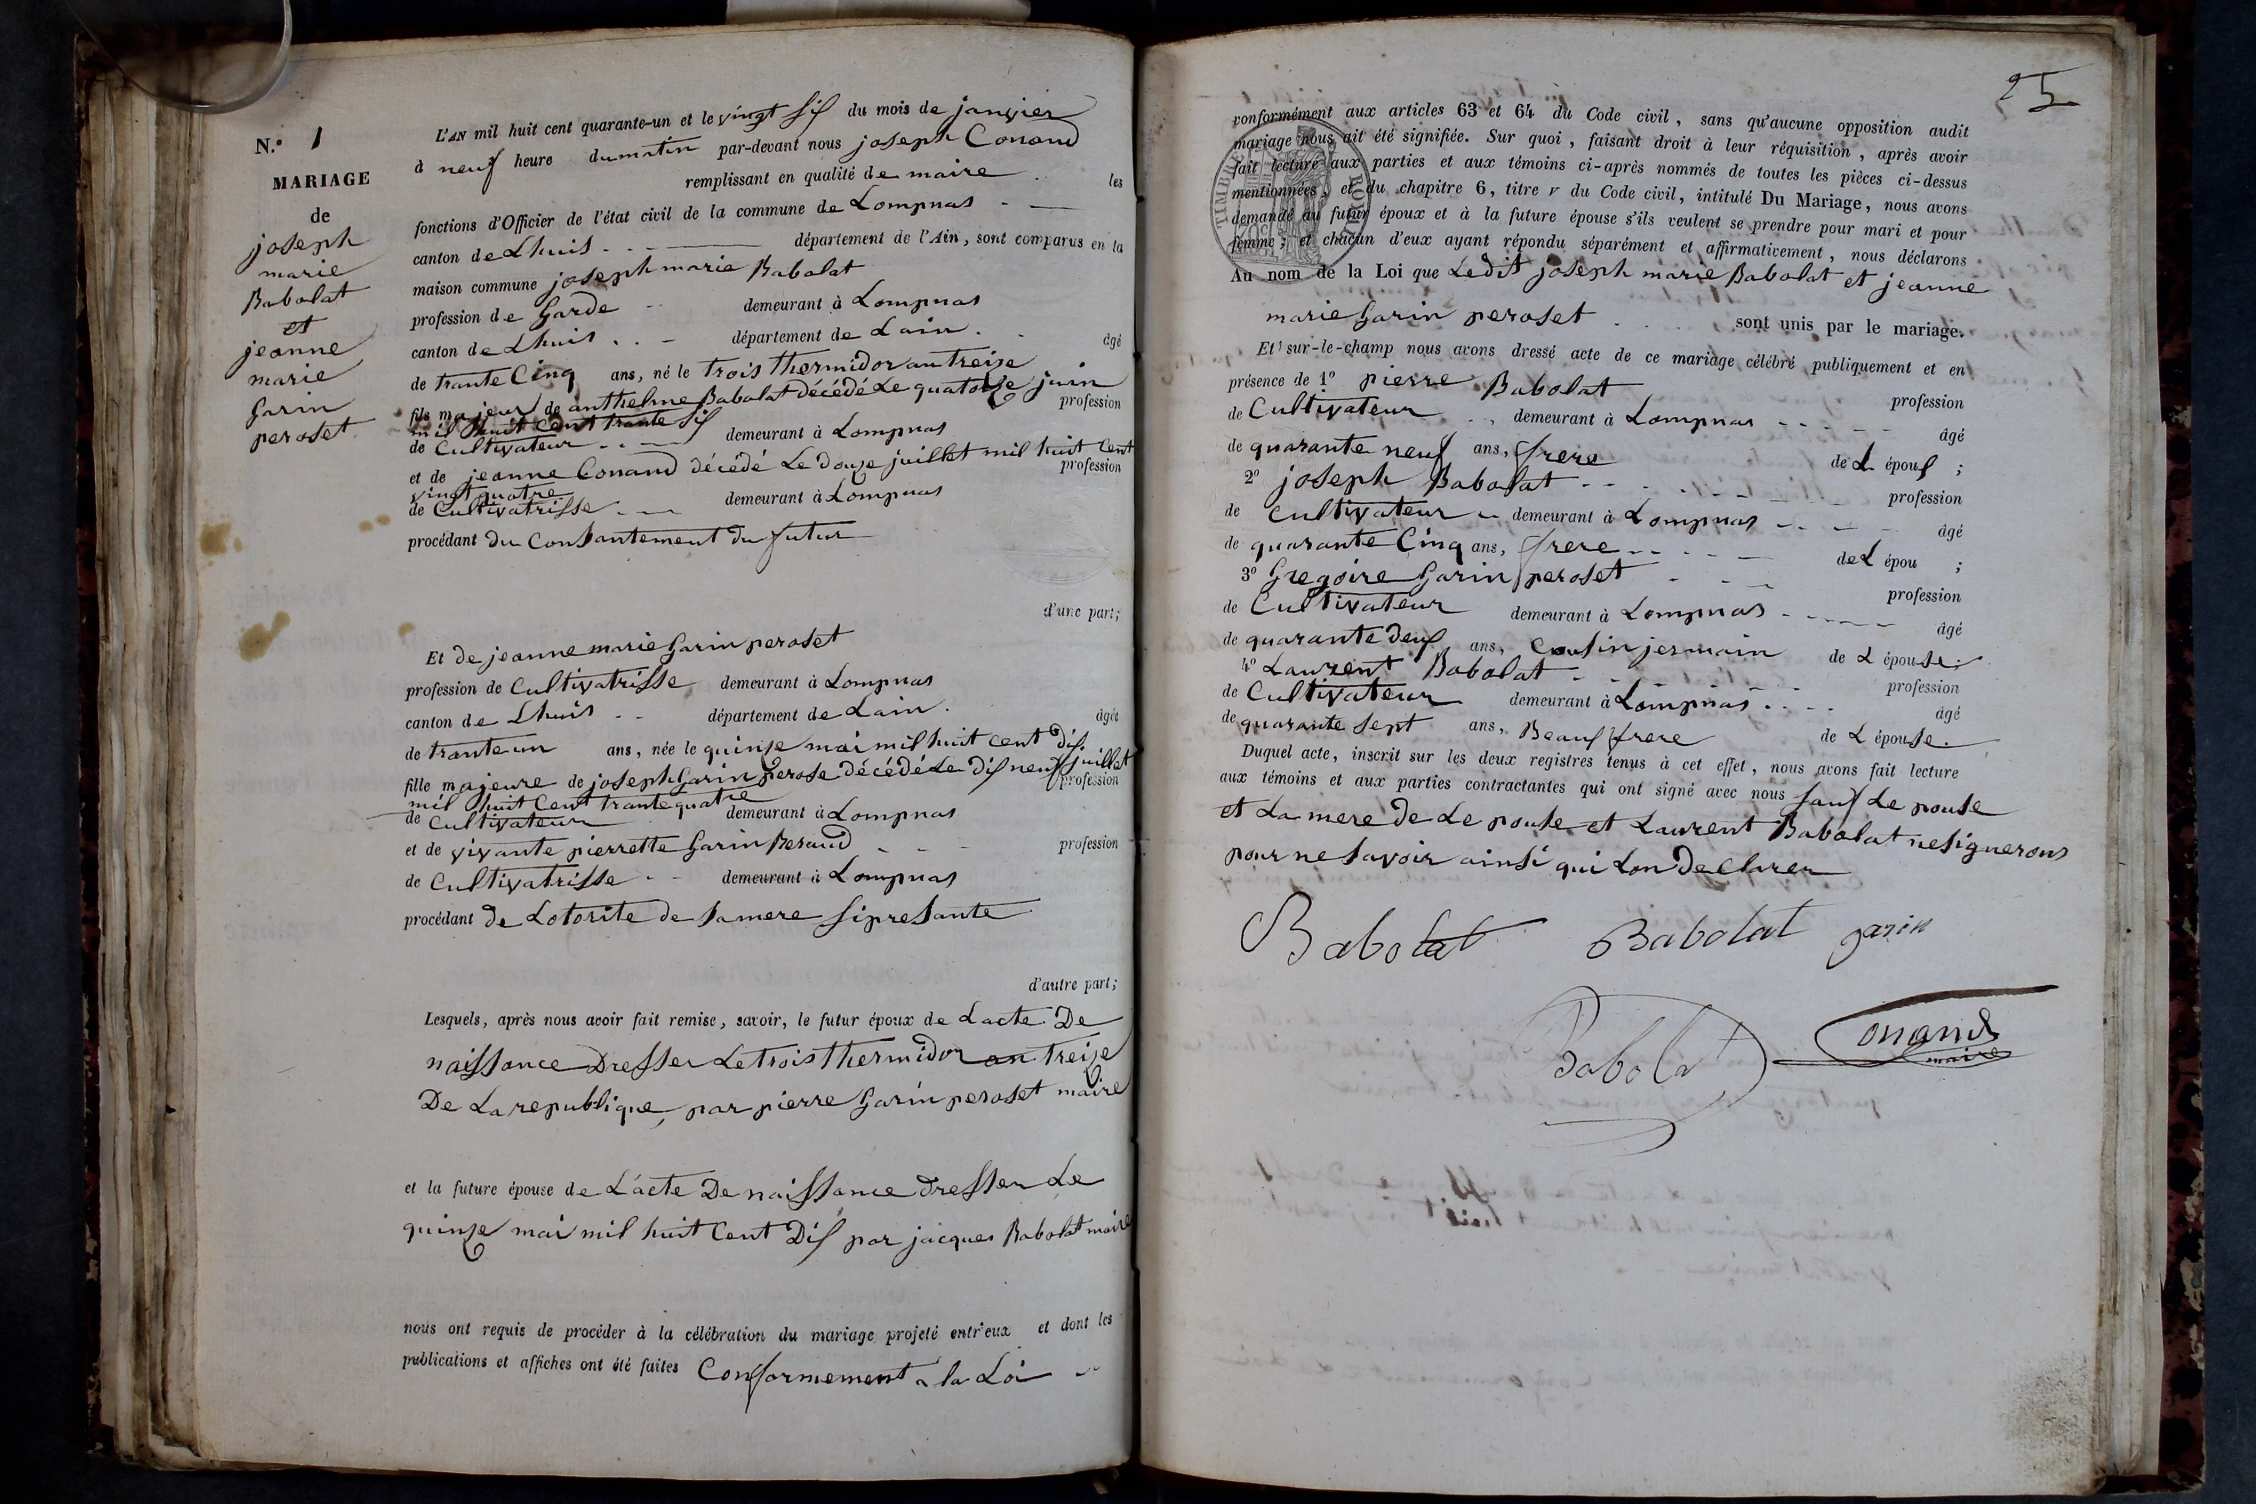 N.º 1
MARIAGE
de
joseph
marie
Babolat
et
jeanne
marie
Garin
peroset
L'AN mil huit cent quarante-un et le vingt six du mois de janvier
à neuf heure du matin par-devant nous joseph Conand
remplissant en qualité de maire les
fonctions d'Officier de l'état civil de la commune de Lompnas
canton de Lhuis département de l'Ain, sont comparus en la
maison commune joseph marie Babolat
profession de Garde demeurant à Lompnas
canton de Lhuis département de Lain. âgé
de trante Cinq ans, né le trois thermidor an treize
fils majeur de anthelme Babolat décédé Le quatorze juin
mil huit Cent trante six profession
de Cultivateur demeurant à Lompnas
et de jeanne Conand décédé Le douze juillet mil huit Cent
vingt quatre profession
de Cultivatrisse demeurant à Lompnas
procédant du Consantement du futur
d'une part;
Et de jeanne marie Garin peroset
profession de Cultivatrisse demeurant à Lompnas
canton de Lhuis département de Lain. âgée
de trante un ans, née le quinze mai mil huit cent dix.
fille majeure de joseph Garin perose décédé Le dix neuf juillet
mil huit Cent trante quatre profession
de Cultivateur demeurant à Lompnas
et de vivante pierrette Garin Beraud profession
de Cultivatrisse demeurant à Lompnas
procédant de Lotorite de Samere Sipresante
d'autre part;
Lesquels, après nous avoir fait remise, savoir, le futur époux de Lacte De
naissance Dresser Le trois thermidor an treize
De La republique, par pierre Garin peroset maire
et la future épouse de L'acte De naissance dresser Le
quinze mai mil huit Cent Dix par jacques Babolat maire
nous ont requis de procéder à la célébration du mariage projeté entr'eux et dont les
publications et affiches ont été faites Conformement a la Loi
25
conformément aux articles 63 et 64 du Code civil, sans qu'aucune opposition audit
mariage nous ait été signifiée. Sur quoi, faisant droit à leur réquisition, après avoir
fait lecture aux parties et aux témoins ci-après nommés de toutes les pièces ci-dessus
mentionnées, et du chapitre 6, titre v du Code civil, intitulé Du Mariage, nous avons
demandé au futur époux et à la future épouse s'ils veulent se prendre pour mari et pour
femme; et chacun d'eux ayant répondu séparément et affirmativement, nous déclarons
TIMBRE ROYAL
Au nom de la Loi que Ledit joseph marie Babolat et jeanne
marie Garin peroset sont unis par le mariage.
Et sur-le-champ nous avons dressé acte de ce mariage célébré publiquement et en
présence de 1º pierre Babolat profession
de Cultivateur demeurant à Lompnas âgé
de quarante neuf ans, frere de L époux ;
2º joseph Babolat profession
de cultivateur demeurant à Lompnas âgé
de quarante Cinq ans, frere de L épou ;
3º Gregoire Garin peroset profession
de Cultivateur demeurant à Lompnas âgé
de quarante deux ans, Cousin jermain de L épouse.
4º Laurent Babolat profession
de Cultivateur demeurant à Lompnas âgé
de quarante Sept ans, Beauf frere de L épouse.
Duquel acte, inscrit sur les deux registres tenus à cet effet, nous avons fait lecture
aux témoins et aux parties contractantes qui ont signé avec nous Sauf Le pouse
et La mere de Le pouse et Laurent Babolat nesignerons
pour ne Savoir ainsi qui Lon declarer
Babolat Babolat garin
Babolat Conand
maire